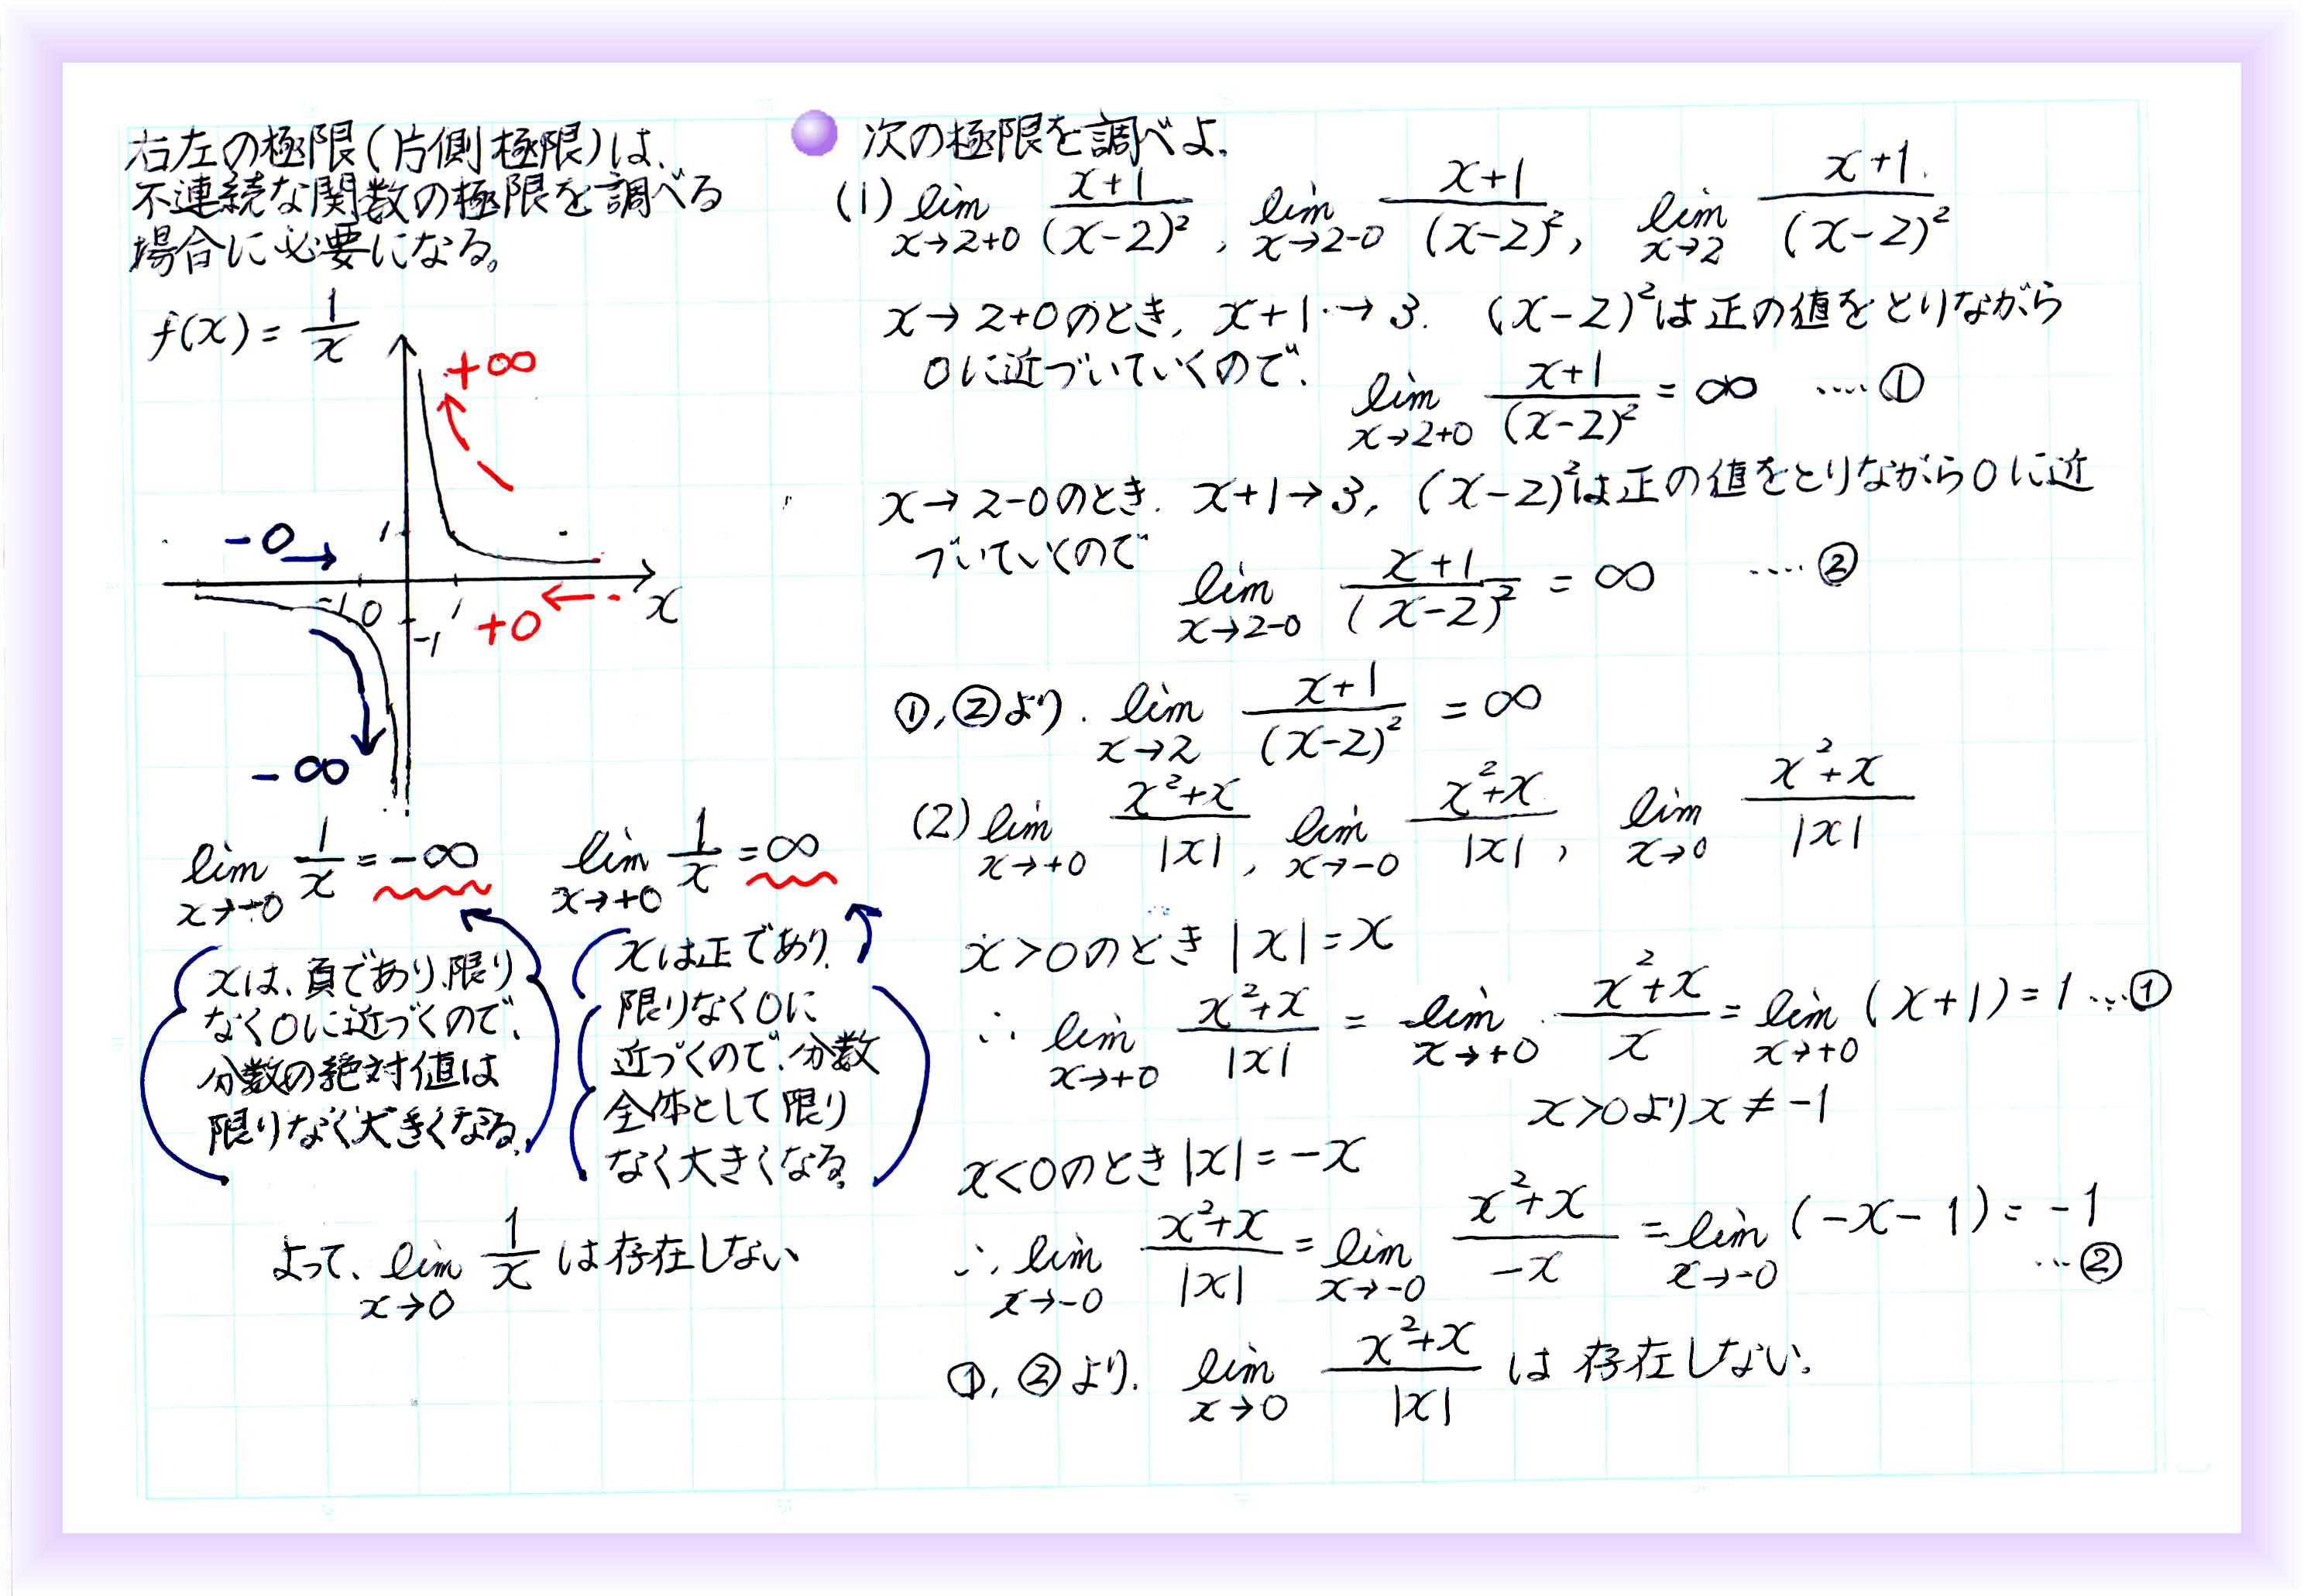 右左の極限(片側極限)は、
不連続な関数の極限を調べる
場合に必要になる。
f(x) = 1/x
+∞
-0
1
x
-1 0 1
+0
-1
-∞
lim x→-0 1/x = -∞ lim x→+0 1/x = ∞
xは、負であり、限り
なく0に近づくので、
分数の絶対値は
限りなく大きくなる。
xは正であり、
限りなく0に
近づくので、分数
全体として限り
なく大きくなる。
よって、lim x→0 1/x は存在しない
次の極限を調べよ.
(1) lim x→2+0 x+1/(x-2)², lim x→2-0 x+1/(x-2)², lim x→2 x+1/(x-2)²
x→2+0のとき, x+1→3. (x-2)²は正の値をとりながら
0に近づいていくので、
lim x→2+0 x+1/(x-2)² = ∞ ‥‥①
x→2-0のとき. x+1→3, (x-2)²は正の値をとりながら0に近
づいていくので
lim x→2-0 x+1/(x-2)² = ∞ ‥‥②
①,②より. lim x→2 x+1/(x-2)² = ∞
(2) lim x→+0 x²+x/|x|, lim x→-0 x²+x/|x|, lim x→0 x²+x/|x|
x>0のとき |x|=x
∴ lim x→+0 x²+x/|x| = lim x→+0 x²+x/x = lim x→+0 (x+1) = 1 …①
x>0より x≠-1
x<0のとき |x|=-x
∴ lim x→-0 x²+x/|x| = lim x→-0 x²+x/-x = lim x→-0 (-x-1) = -1
…②
①,②より. lim x→0 x²+x/|x| は存在しない。